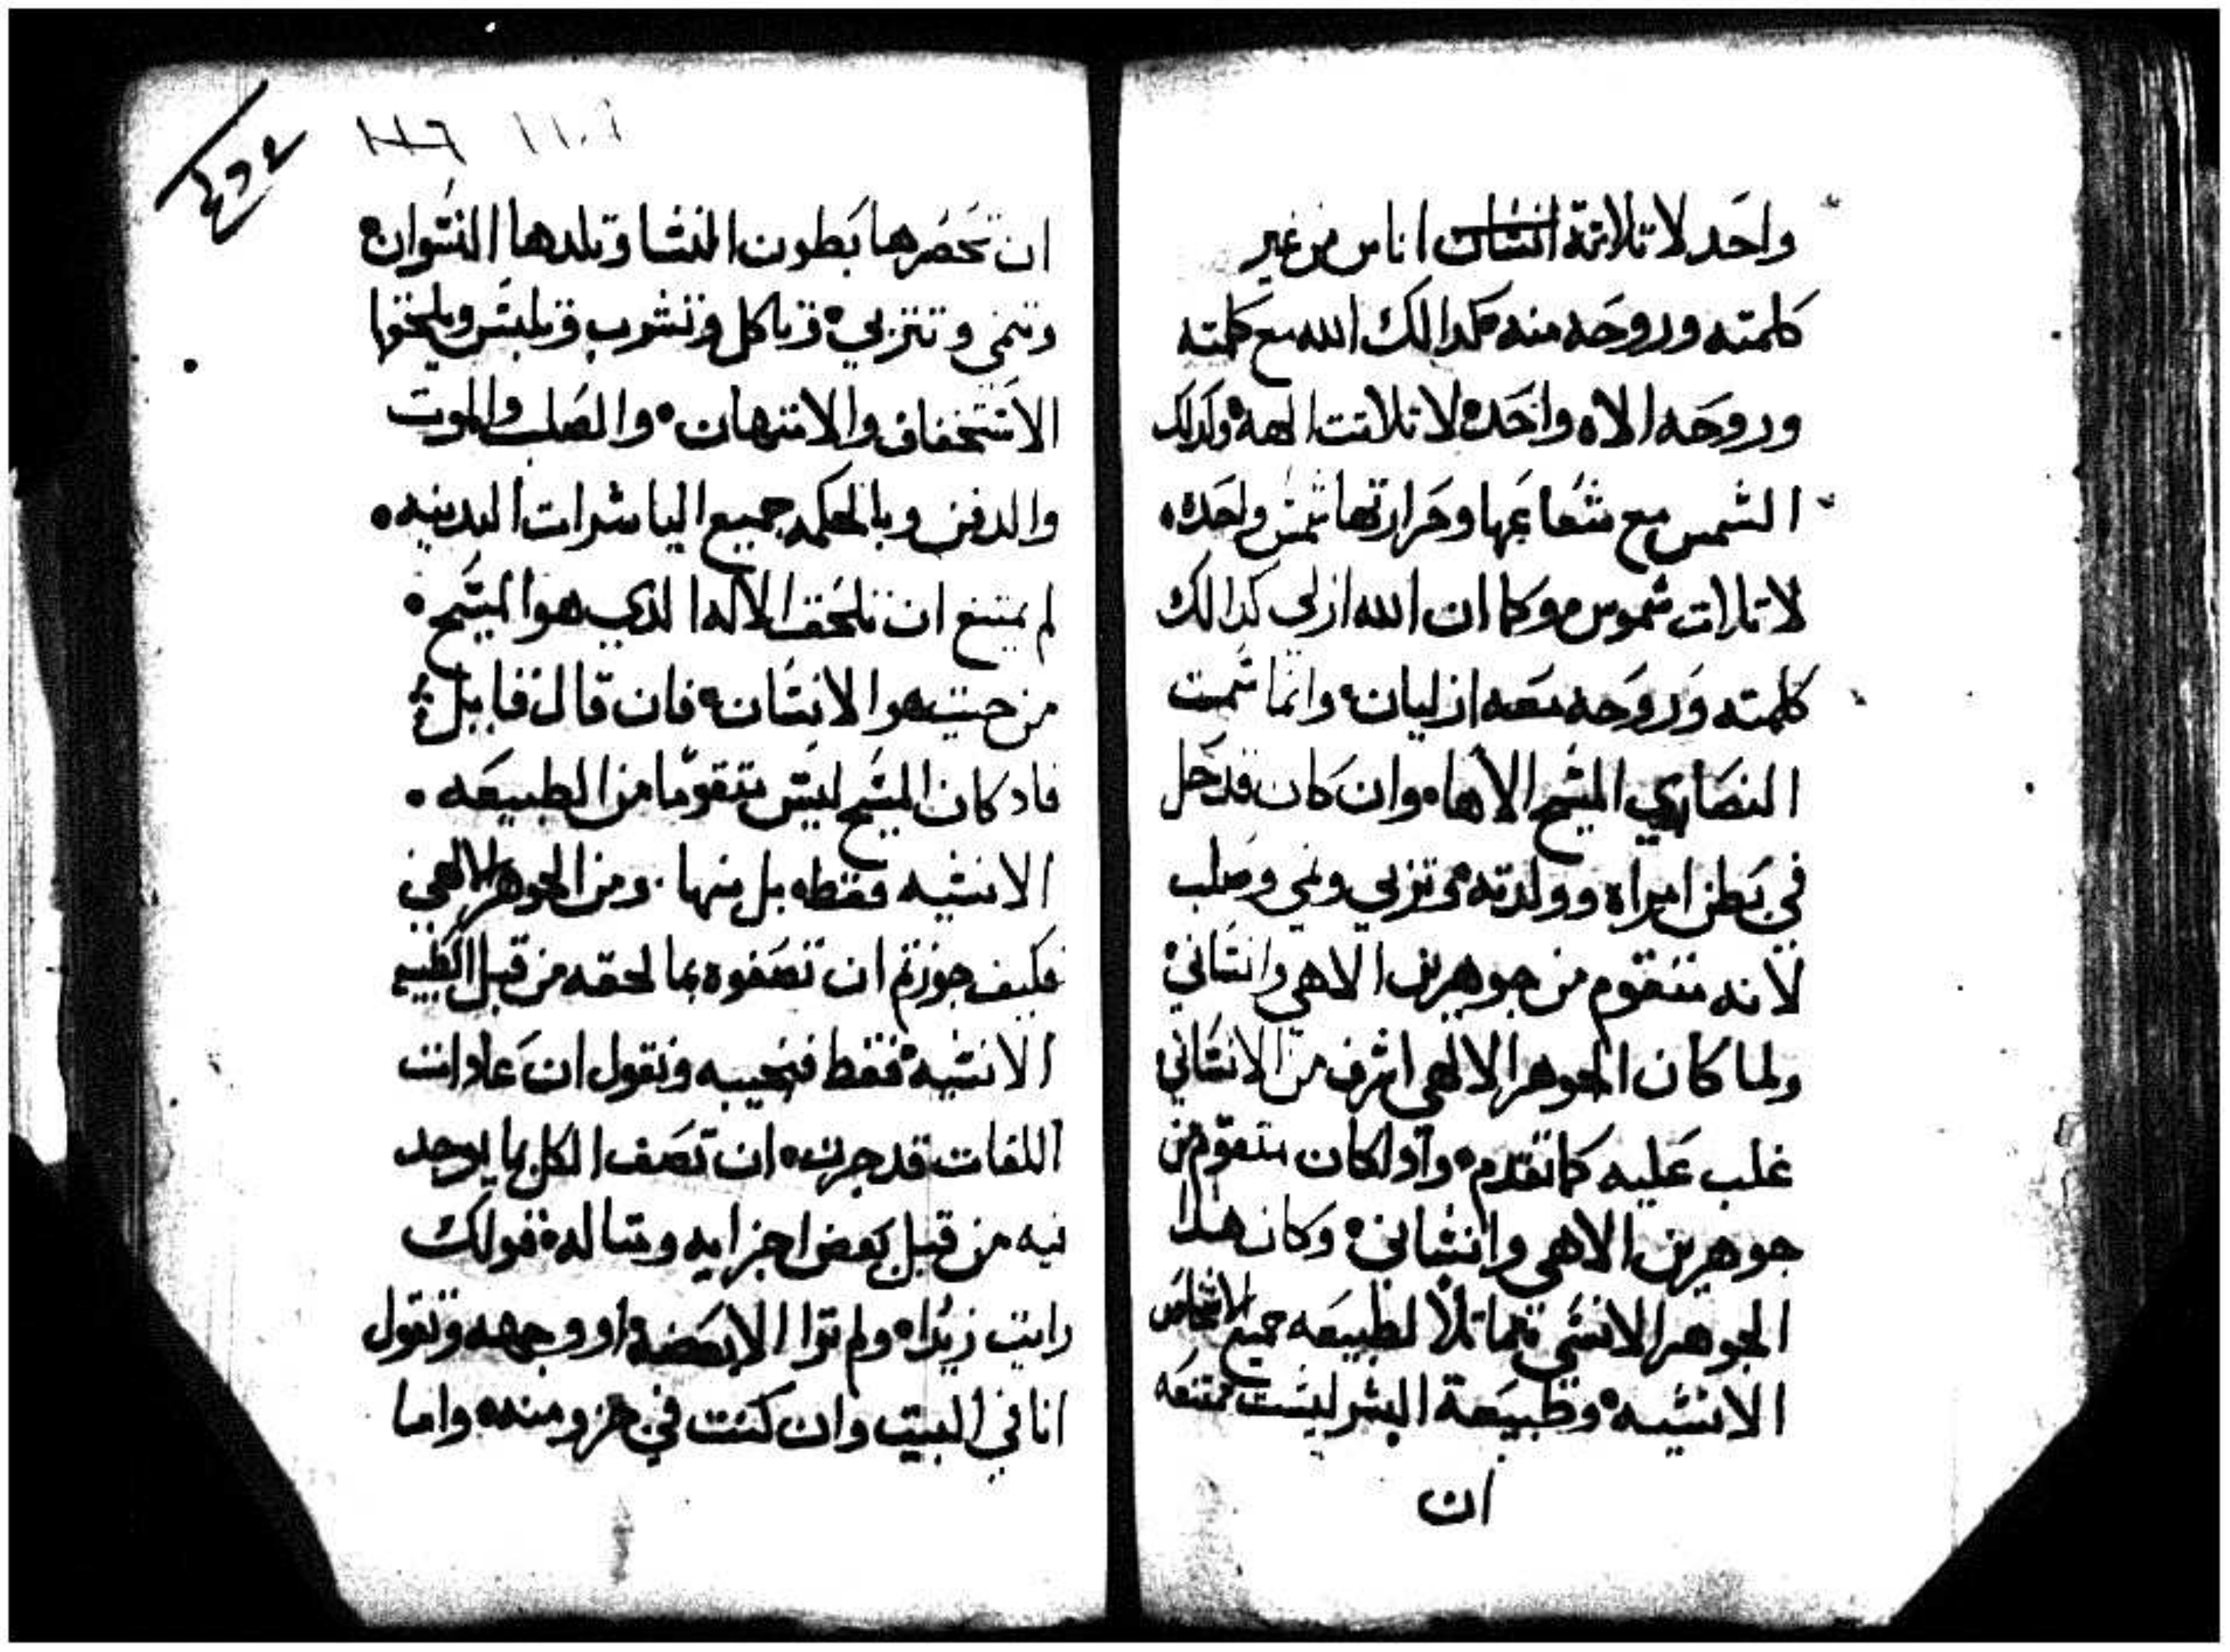 واحد لا تلاتة انسان اناس من غير
كلمته وروحه منه كدالك الله مع كلمته
وروحه الاه واحده لا تلاتت الهه وكدلك
الشمس مع شعاعها وحرارتها شمس واحده
لا تلات شموس وكما ان الله ازلي كدالك
كلمته وروحه معه ازليان وانما سمت
النصاري المسيح الاها وان كان قد حل
في بطن امراه وولدته وتربي ونمي وصلب
لانه متقوم من جوهرين الاهي وانساني
ولما كان الجوهر الالهي اشرف من الانساني
غلب عليه كما تقدم وادا كان متقوم من
جوهرين الاهي وانساني وكان هدا
الجوهر الانسي مماتلا لطبيعه جميع الاشخاص
الانسيه وطبيعة البشر ليست ممتنعه
ان
١١٠٦
ان تحصرها بطون النسا وتلدها النسوان
وتنمي وتتربي وتاكل وتشرب وتلبس ويلحقها
الاستخفاف والامتهان والصلب والموت
والدفن وبالحكمه جميع الياشرات البدنيه
لم يمتنع ان تلحق الاله الدي هو المسيح
من حيت هو الانسان فان قال قايل
فاد كان المسيح ليس متقوما من الطبيعه
الانسيه فقط بل منها ومن الجوهر الالهي
فكيف جوزتم ان تصفوه بما لحقه من قبل الطبيعه
الانسيه فقط فنجيبه ونقول ان عادات
اللغات قد جرت ان تصف الكل بما يوجد
فيه من قبل بعض اجزايه ومتاله قولك
رايت زيدا ولم ترا الا بعضه او وجهه وتقول
انا في البيت وان كنت في جزو منه واما